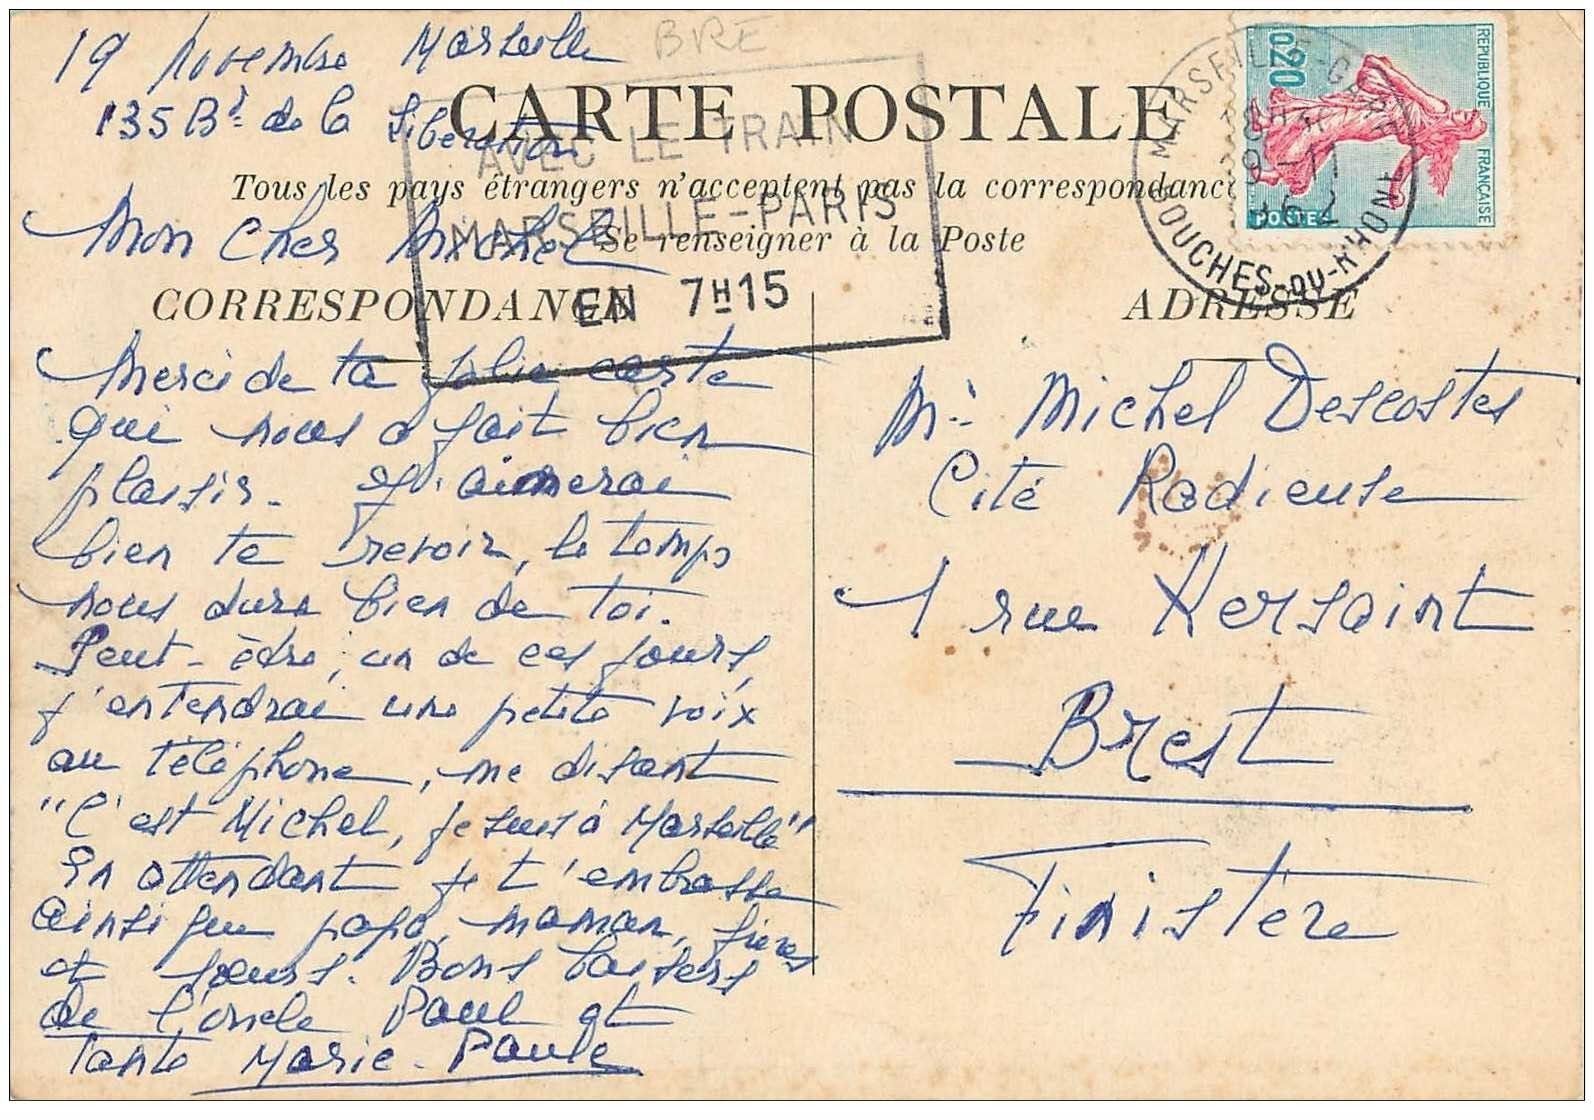 19 Novembre Marseille
BRE
135 Bd de la Libération
CARTE POSTALE
Tous les pays étrangers n'acceptent pas la correspondance
Se renseigner à la Poste
AVEC LE TRAIN
MARSEILLE-PARIS
EN 7H15
0,20
REPUBLIQUE FRANÇAISE
POSTES
MARSEILLE-GARE
BOUCHES-DU-RHONE
CORRESPONDANCE
Mon Cher Michel
Merci de ta jolie carte
qui nous a fait bien
plaisir. J'aimerai
bien te revoir, le temps
nous dure bien de toi.
Peut-être, un de ces jours,
j'entendrai une petite voix
au téléphone, me disant
"C'est Michel, je suis à Marseille"
En attendant je t'embrasse
ainsi que papa, maman, frères
et sœurs. Bons baisers
de l'oncle Paul et
Tante Marie-Paule
ADRESSE
Mr Michel Descostes
Cité Radieuse
1 rue Kersaint
Brest
Finistère